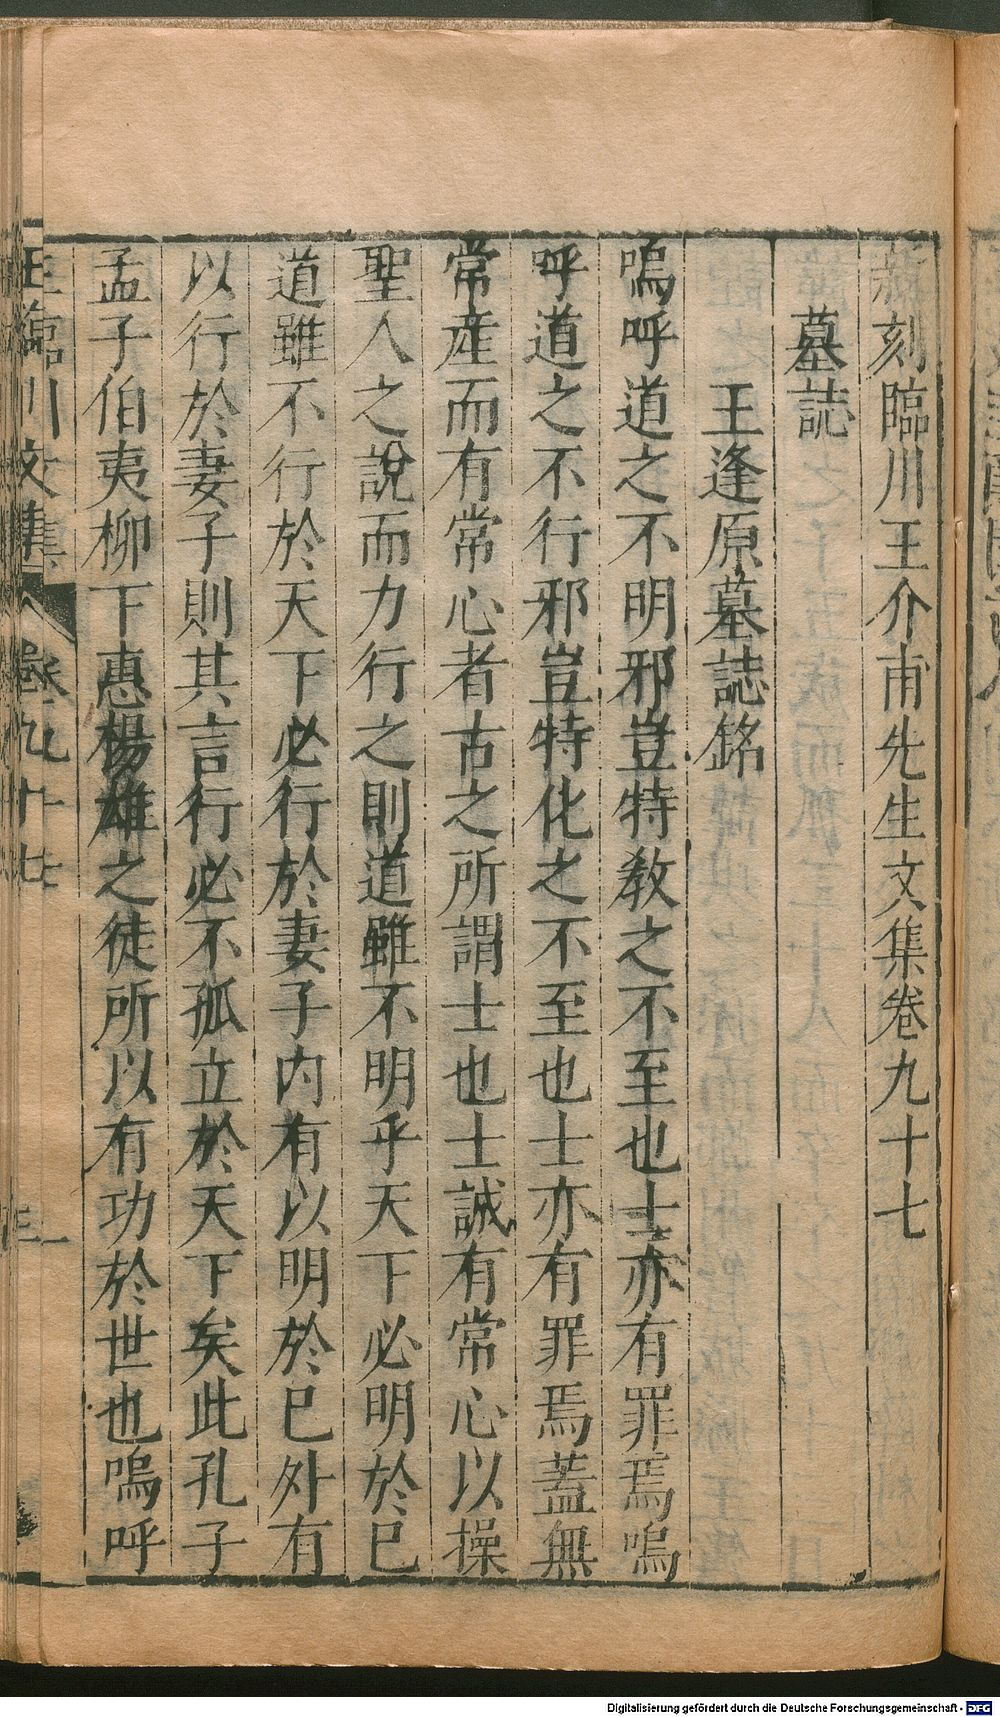 新刻臨川王介甫先生文集卷九十七
墓誌
王逢原墓誌銘
嗚呼道之不明邪豈特教之不至也士亦有罪焉嗚
呼道之不行邪豈特化之不至也士亦有罪焉蓋無
常産而有常心者古之所謂士也士誠有常心以操
聖人之說而力行之則道雖不明乎天下必明於巳
道雖不行於天下必行於妻子內有以明於巳外有
以行於妻子則其言行必不孤立於天下矣此孔子
孟子伯夷柳下惠楊雄之徒所以有功於世也嗚呼
王臨川文集 卷九十七 一
Digitalisierung gefördert durch die Deutsche Forschungsgemeinschaft - DFG